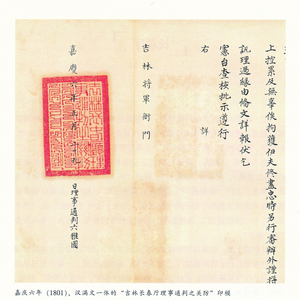 上控累及無辜俟拘獲但夫佟盡忠時另行審辦外謹将
訊理過緣由條文詳報伏乞
憲台查核批示遵行
右 詳
吉林将軍衙門
嘉慶 年 月 十九
日理事通判六雅圖
嘉庆六年(1801)，汉满文一体的“吉林长春厅理事通判之关防”印模